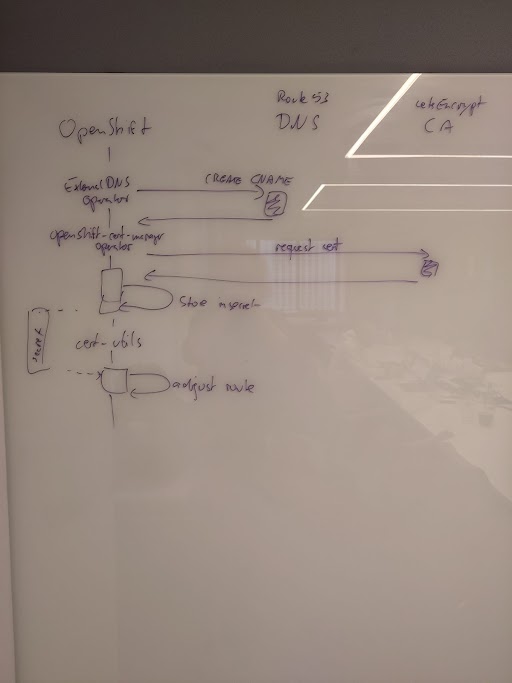 Route 53
DNS
LetsEncrypt
CA
OpenShift
ExternalDNS
Operator
CREATE CNAME
openshift-cert-manager
operator
request cert
Store in secret
secret
cert-utils
adjust route